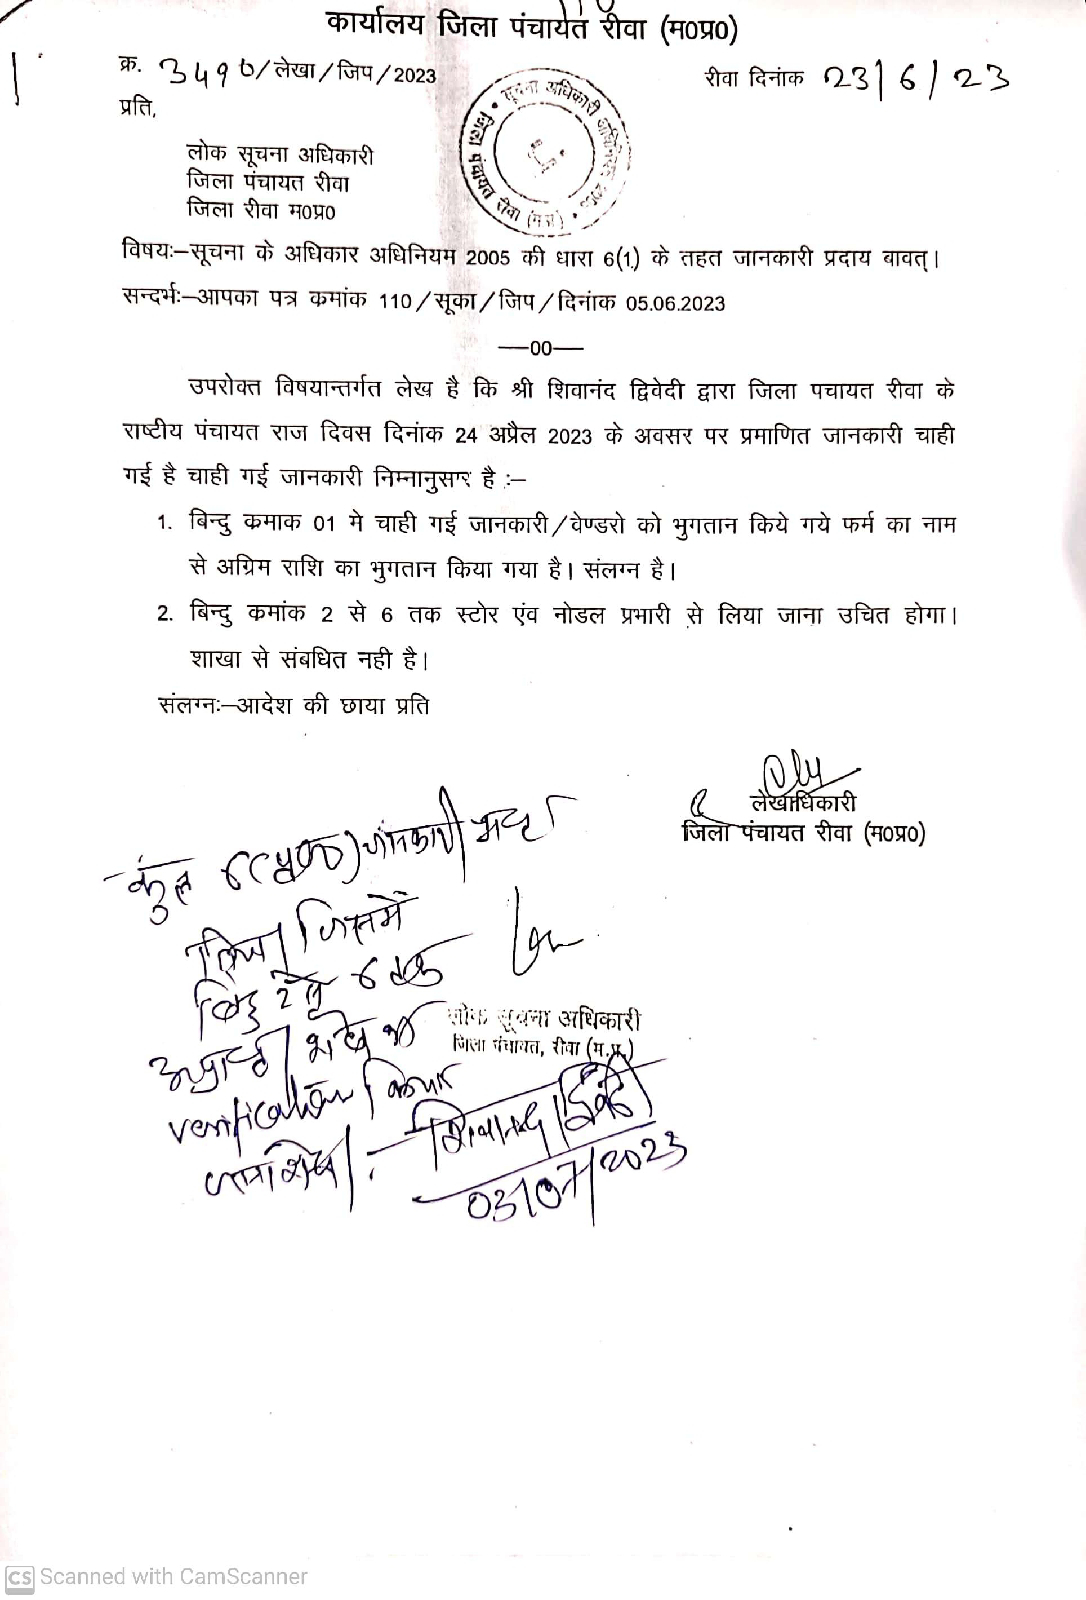 कार्यालय जिला पंचायत रीवा (म0प्र0)
क्र. 3490/लेखा/जिप/2023 रीवा दिनांक 23/6/23
प्रति,
सूचना अधिकारी अधिनियम 2005
जिला पंचायत रीवा (म.प्र.)
लोक सूचना अधिकारी
जिला पंचायत रीवा
जिला रीवा म0प्र0
विषयः–सूचना के अधिकार अधिनियम 2005 की धारा 6(1) के तहत जानकारी प्रदाय बावत्।
सन्दर्भः–आपका पत्र कमांक 110/सूका/जिप/दिनांक 05.06.2023
—00—
उपरोक्त विषयान्तर्गत लेख है कि श्री शिवानंद द्विवेदी द्वारा जिला पचायत रीवा के
राष्टीय पंचायत राज दिवस दिनांक 24 अप्रैल 2023 के अवसर पर प्रमाणित जानकारी चाही
गई है चाही गई जानकारी निम्नानुसार है :–
1. बिन्दु कमाक 01 मे चाही गई जानकारी/वेण्डरो को भुगतान किये गये फर्म का नाम
से अग्रिम राशि का भुगतान किया गया है। संलग्न है।
2. बिन्दु कमांक 2 से 6 तक स्टोर एंव नोडल प्रभारी से लिया जाना उचित होगा।
शाखा से संबधित नही है।
संलग्नः–आदेश की छाया प्रति
लेखाधिकारी
जिला पंचायत रीवा (म0प्र0)
कुल 6 जानकारी
जिसमें
बिंदु 2 से 6 तक
लोक सूचना अधिकारी
जिला पंचायत, रीवा (म.प्र.)
verification किया
शिवानन्द द्विवेदी
03/07/2023
CS Scanned with CamScanner